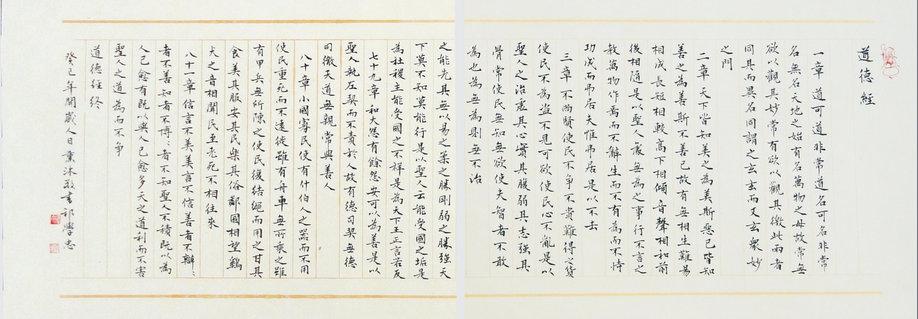 道德經
一章 道可道非常道名可名非常
名無名天地之始有名萬物之母故常無
欲以觀其妙常有欲以觀其徼此兩者
同出而異名同謂之玄玄而又玄衆妙
之門
二章 天下皆知美之為美斯惡已皆知
善之為善斯不善已故有無相生難易
相成長短相較高下相傾音聲相和前
後相隨是以聖人處無為之事行不言之
教萬物作焉而不辭生而不有為而不恃
功成而弗居夫惟弗居是以不去
三章 不尚賢使民不爭不貴難得之貨
使民不為盜不見可欲使民心不亂是以
聖人之治虛其心實其腹弱其志強其
骨常使民無知無欲使夫智者不敢
為也為無為則無不治
之能先其無以易之柔之勝剛弱之勝強天
下莫不知莫能行是以聖人云能受國之垢是
為社稷主能受國之不祥是為天下王正言若反
七十九章 和大怨有餘怨安可以為善是以
聖人執左契而不責於人故有德司契無德
司徹天道無親常與善人
八十章 小國寡民使有什伯人之器而不用
使民重死而不遠徙雖有舟車無所乘之雖
有甲兵無所陳之使民復結繩而用之甘其
食美其服安其民樂其俗鄰國相望鷄
犬之音相聞民至老死不相往來
八十一章 信言不美美言不信善者不辯辯
者不善知者不博博者不知聖人不積既以為
人己愈有既以與人己愈多天之道利而不害
聖人之道為而不爭
道德經終
癸巳年閏歲人日薰沐敬書 祁學忠